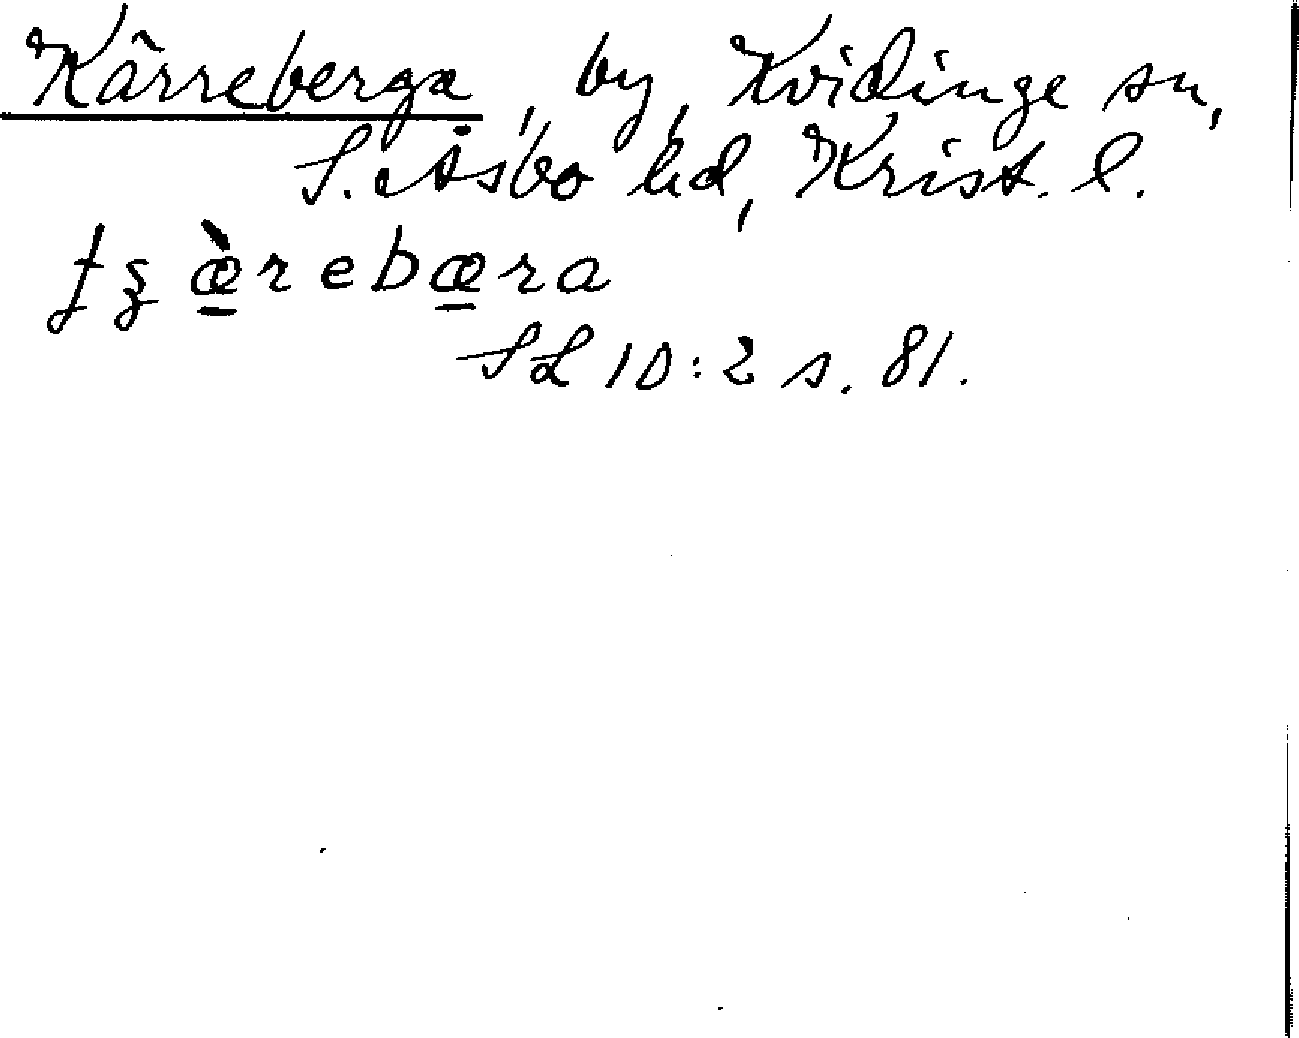 Kärreberga, by, Kvidinge sn,
S. Åsbo hd, Krist. l.
ɟʓæ̠̀rebæ̠ra
SL 10:2 s. 81.